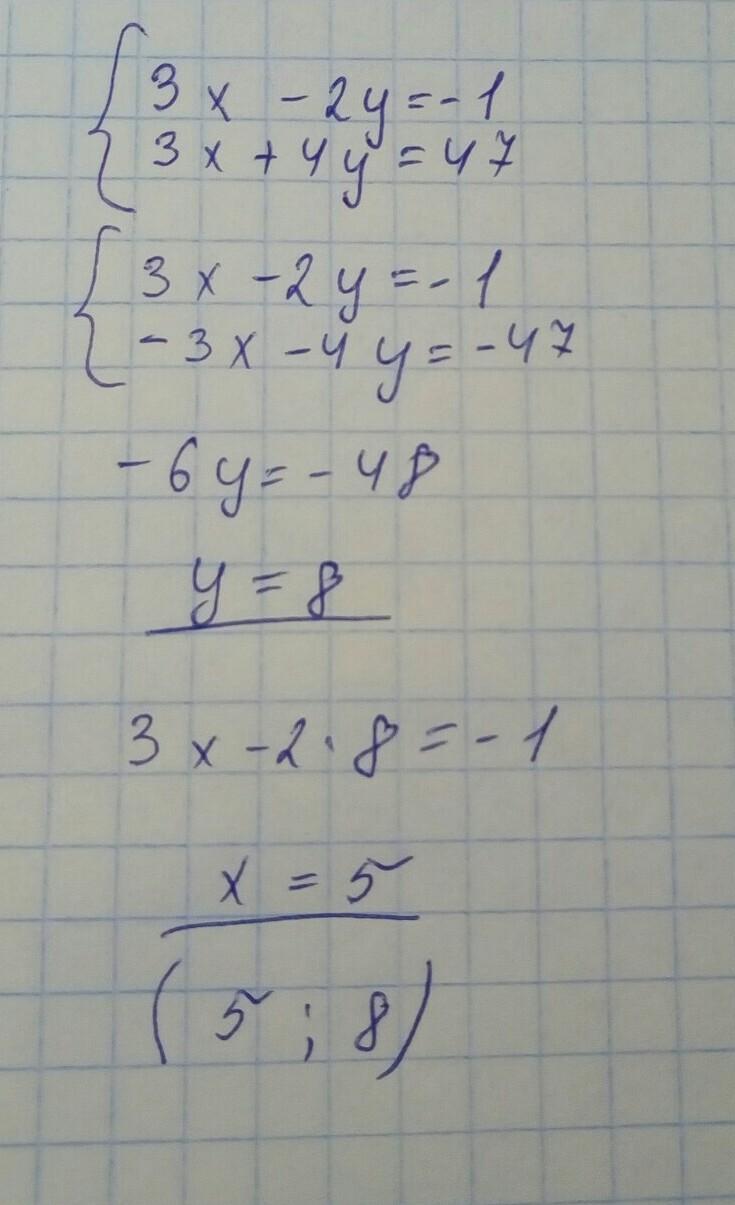 3x - 2y = -1
3x + 4y = 47
3x - 2y = -1
-3x - 4y = -47
-6y = -48
y = 8
3x - 2 · 8 = -1
x = 5
(5 ; 8)